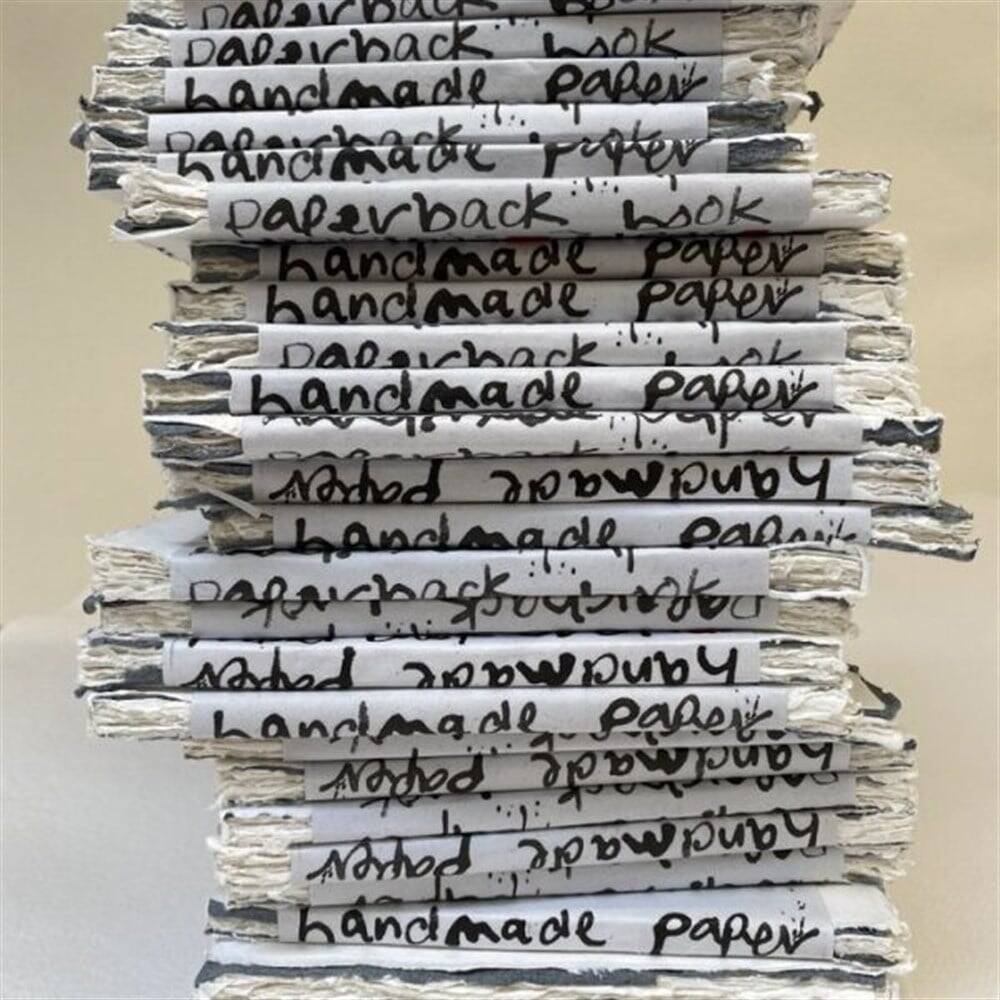 paperback book
paperback book
handmade paper
paperback
handmade paper
paperback book
handmade paper
handmade paper
paperback book
handmade paper
handmade paper
handmade paper
paperback book
paperback
handmade paper
handmade paper
handmade paper
handmade paper
handmade paper